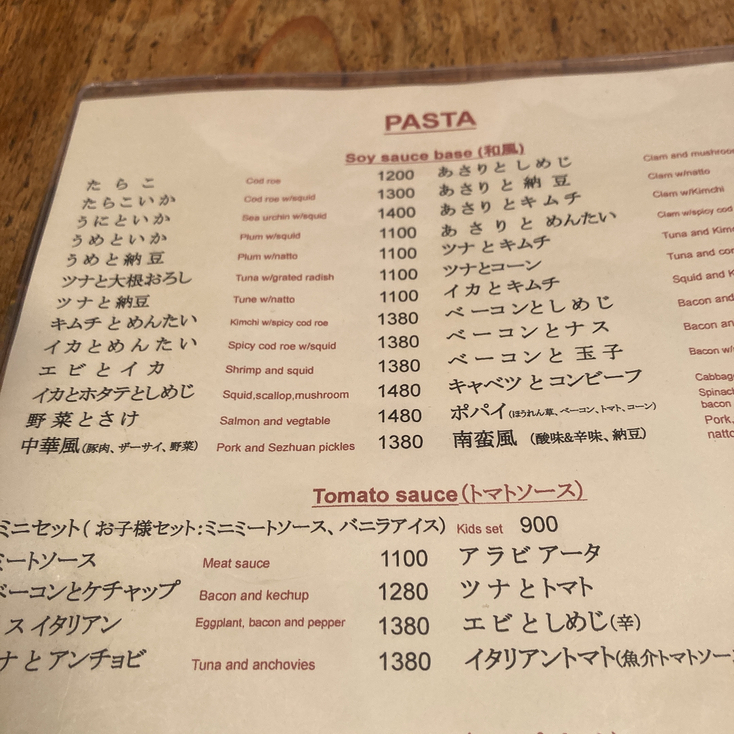 PASTA
Soy sauce base (和風)
たらこ Cod roe 1200 あさりとしめじ Clam and mushroom
たらこいか Cod roe w/squid 1300 あさりと納豆 Clam w/natto
うにといか Sea urchin w/squid 1400 あさりとキムチ Clam w/Kimchi
うめといか Plum w/squid 1100 あさりとめんたい Clam w/spicy cod
うめと納豆 Plum w/natto 1100 ツナとキムチ Tuna and Kim
ツナと大根おろし Tuna w/grated radish 1100 ツナとコーン Tuna and
ツナと納豆 Tune w/natto 1100 イカとキムチ Squid and K
キムチとめんたい Kimchi w/spicy cod roe 1380 ベーコンとしめじ Bacon and
イカとめんたい Spicy cod roe w/squid 1380 ベーコンとナス Bacon an
エビとイカ Shrimp and squid 1380 ベーコンと玉子 Bacon w/
イカとホタテとしめじ Squid,scallop,mushroom 1480 キャベツとコンビーフ Cabbag
野菜とさけ Salmon and vegtable 1480 ポパイ(ほうれん草、ベーコン、トマト、コーン) Spinac bacon
中華風(豚肉、ザーサイ、野菜) Pork and Sezhuan pickles 1380 南蛮風 (酸味&辛味、納豆) Pork, natto
Tomato sauce(トマトソース)
ミニセット( お子様セット:ミニミートソース、バニラアイス) Kids set 900
ミートソース Meat sauce 1100 アラビアータ
ベーコンとケチャップ Bacon and kechup 1280 ツナとトマト
スイタリアン Eggplant, bacon and pepper 1380 エビとしめじ(辛)
ナとアンチョビ Tuna and anchovies 1380 イタリアントマト(魚介トマトソー